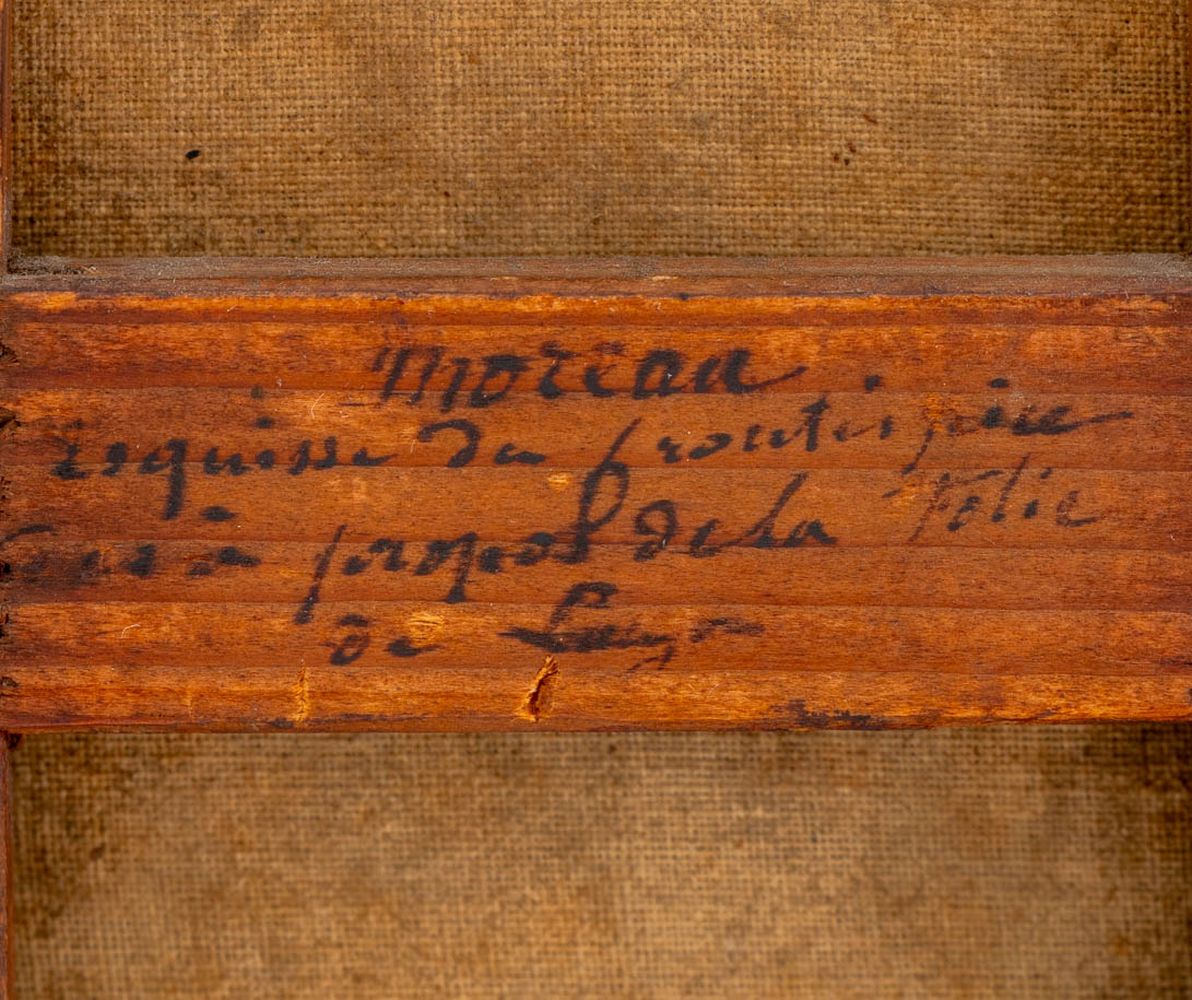 Moreau
Esquisse du frontispice
Des à propos de la Folie
de Laujon